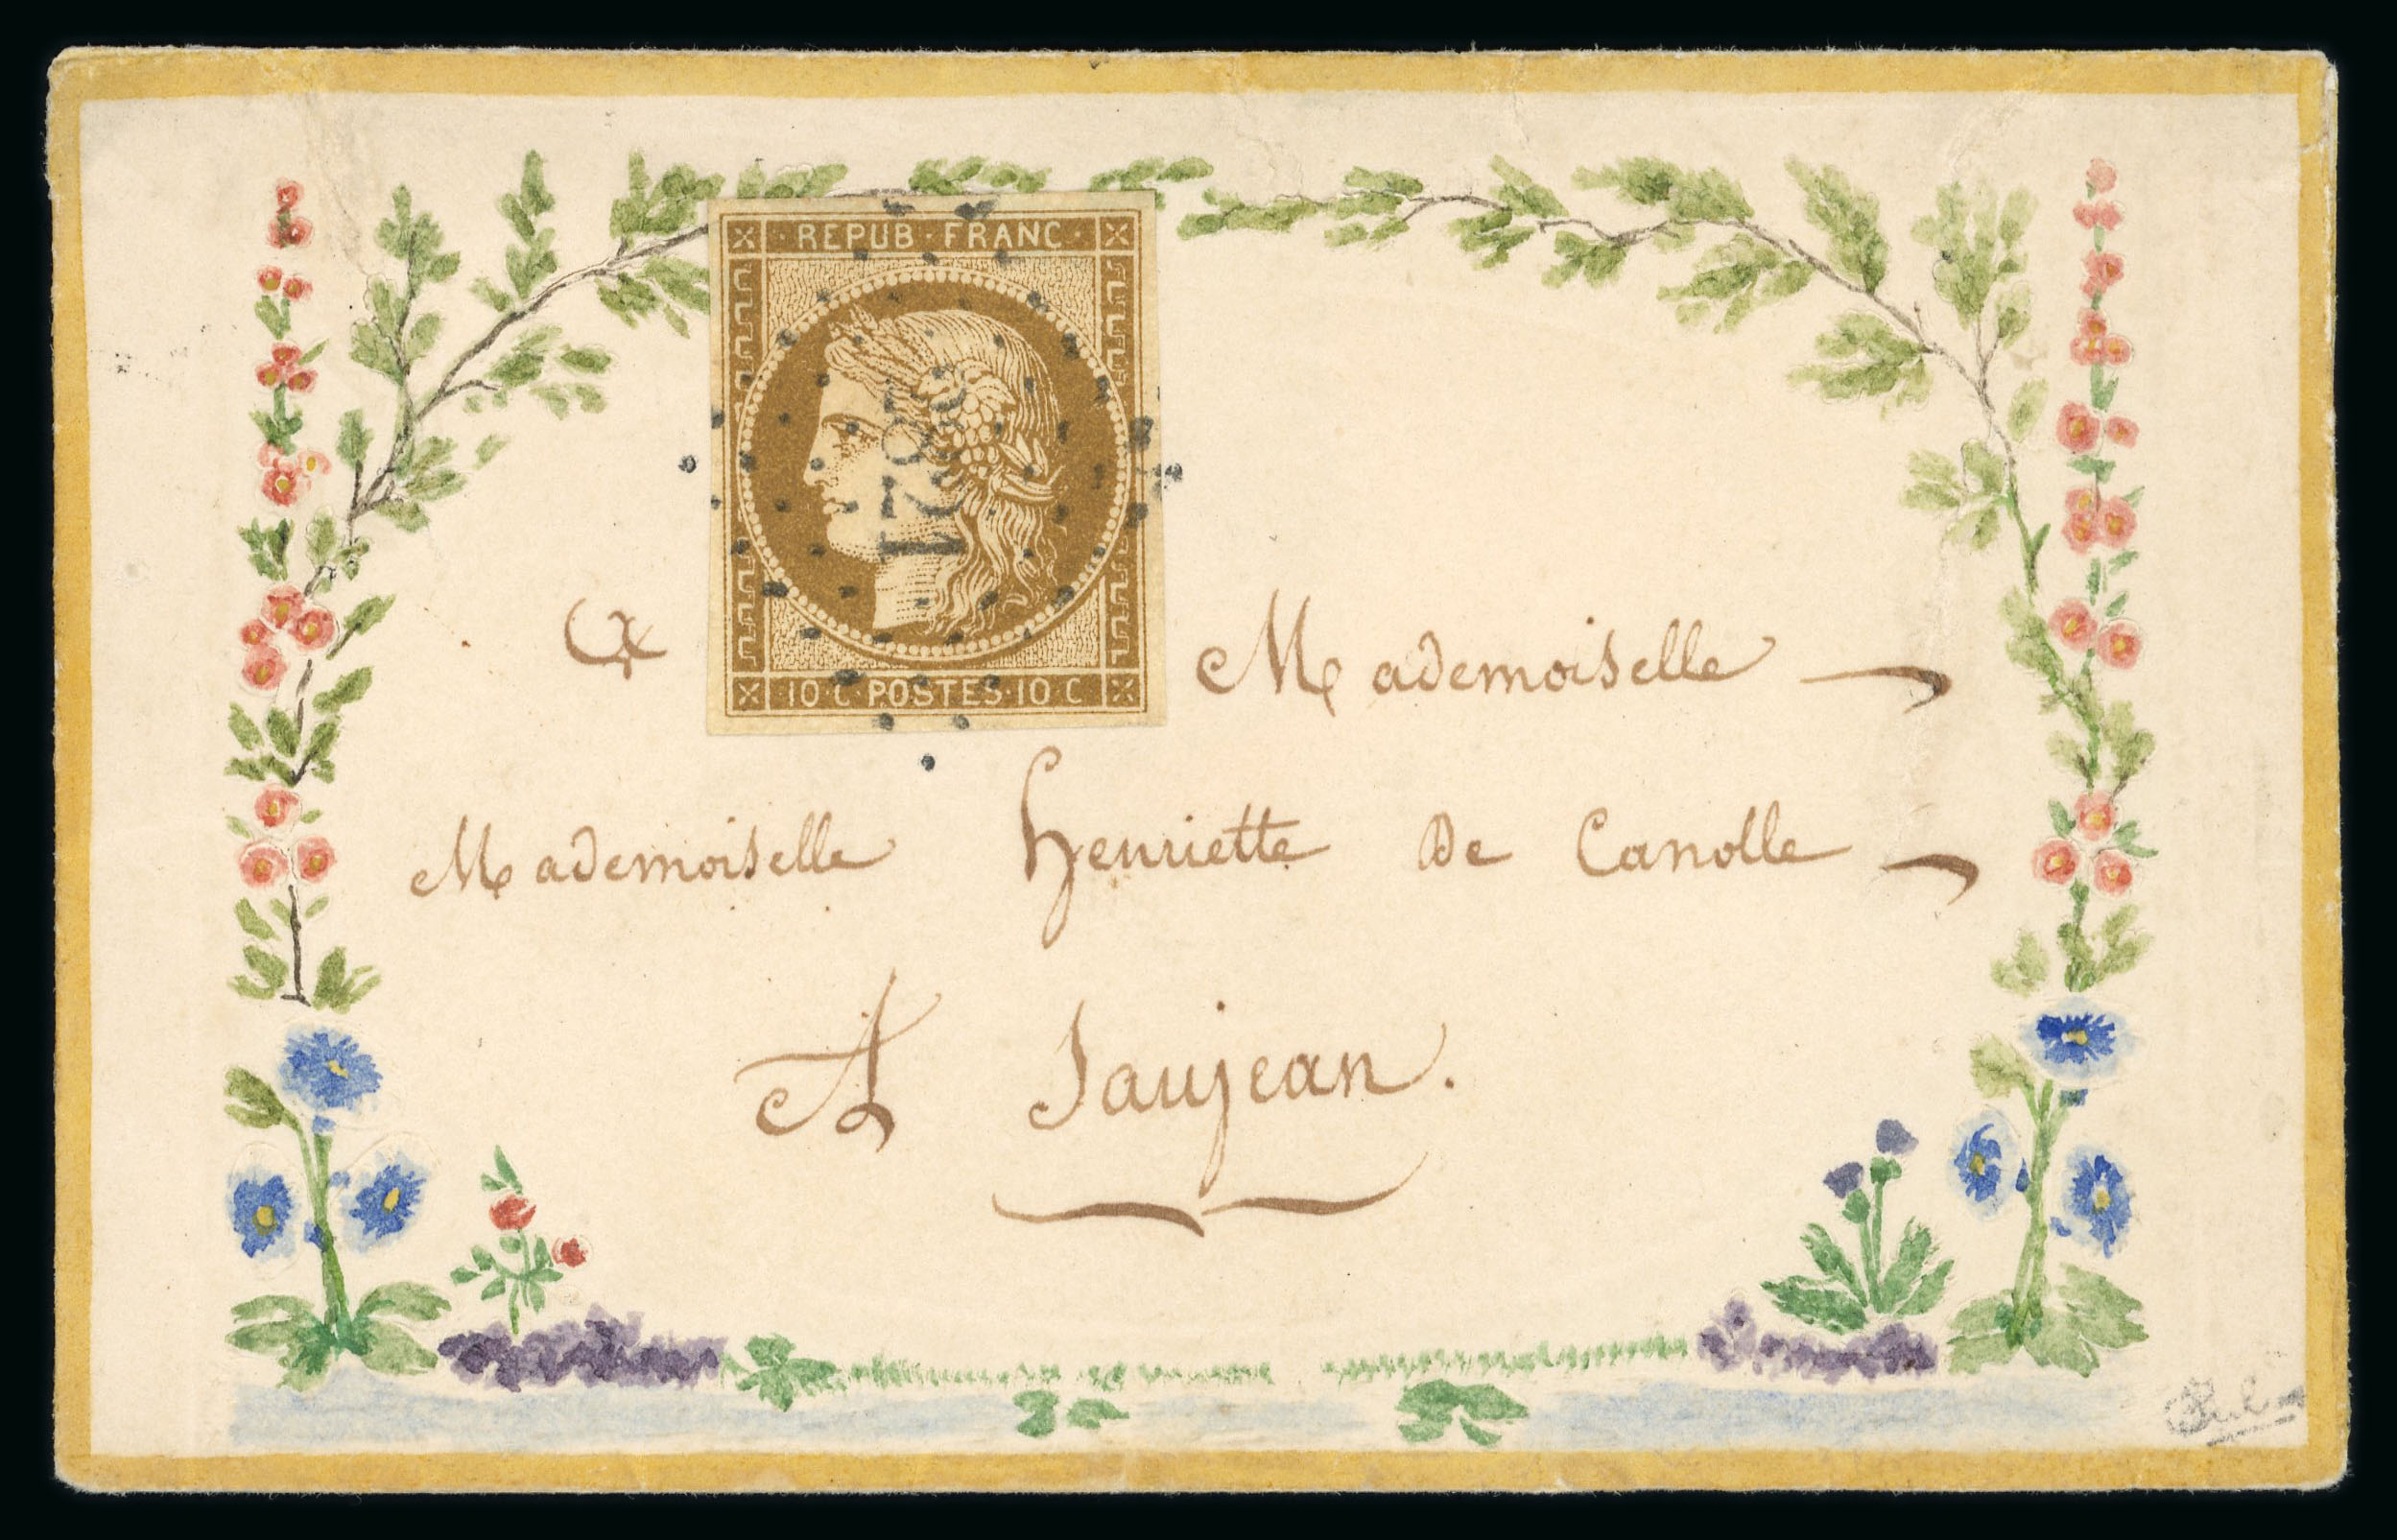 · REPUB · FRANC ·
10 C · POSTES · 10 C
A Mademoiselle
Mademoiselle Henriette De Canolle
A Saujean.